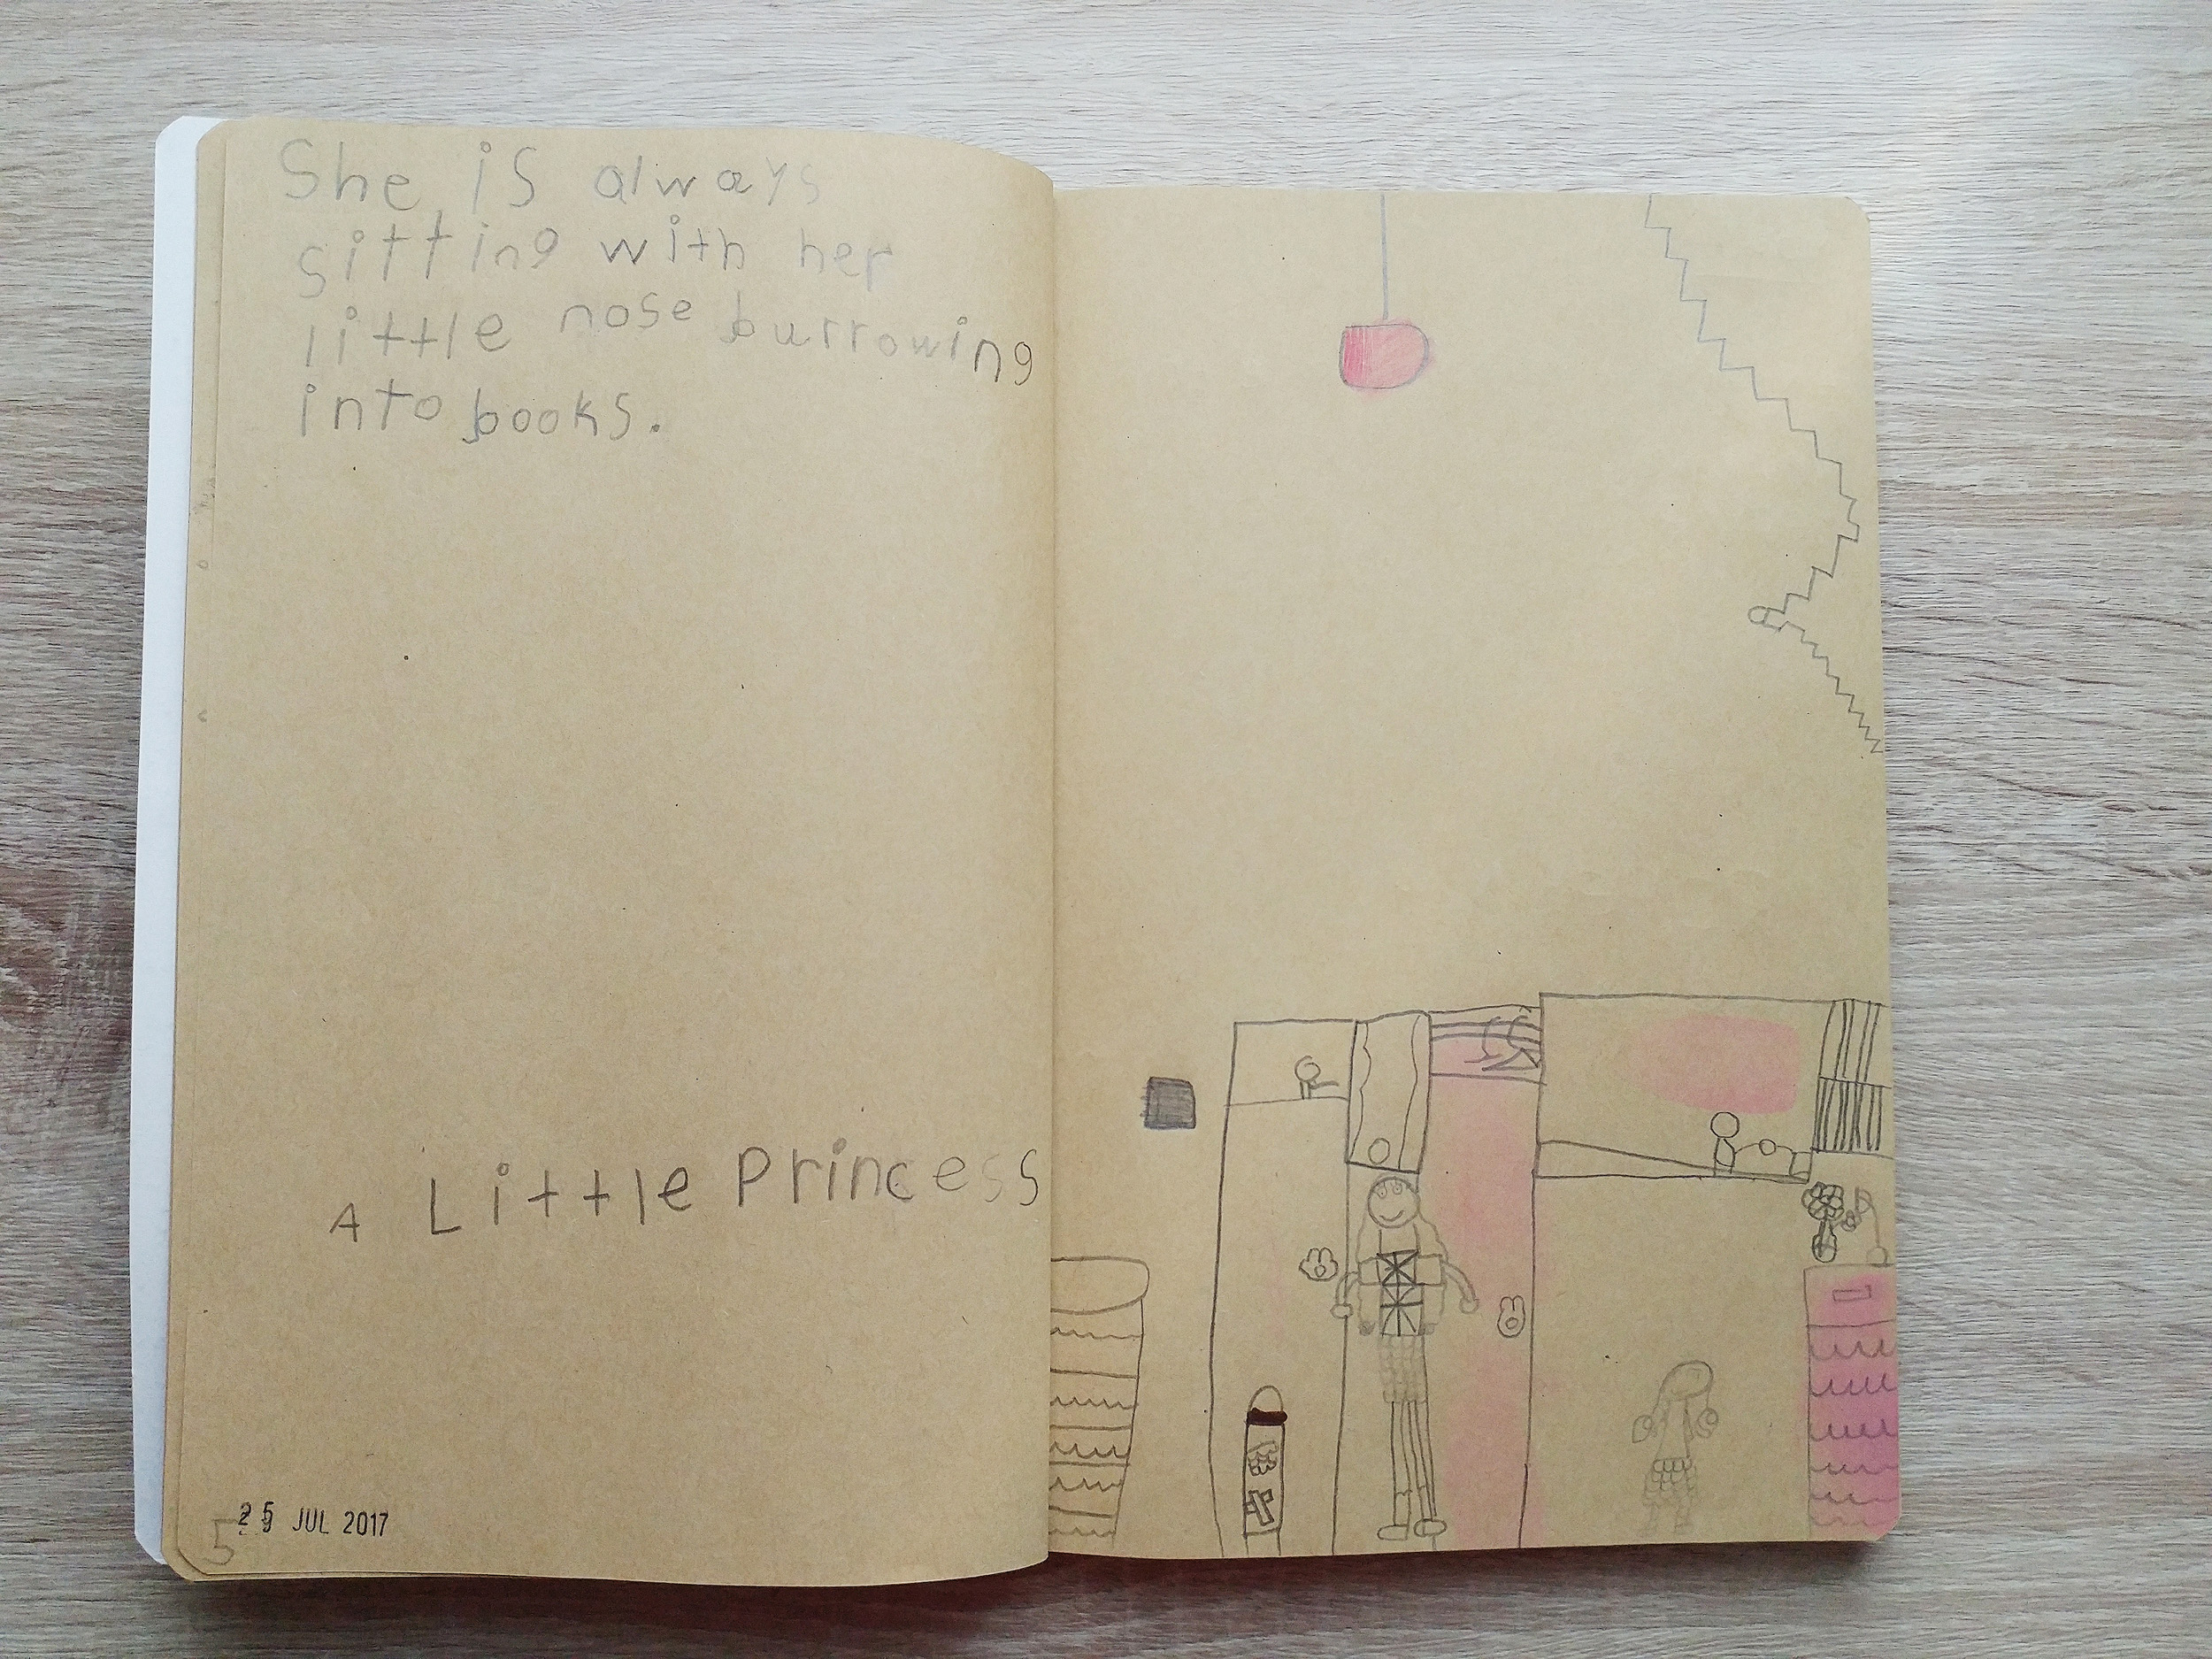 She is always
sitting with her
little nose burrowing
into books.
A Little Princess
25 JUL 2017
5